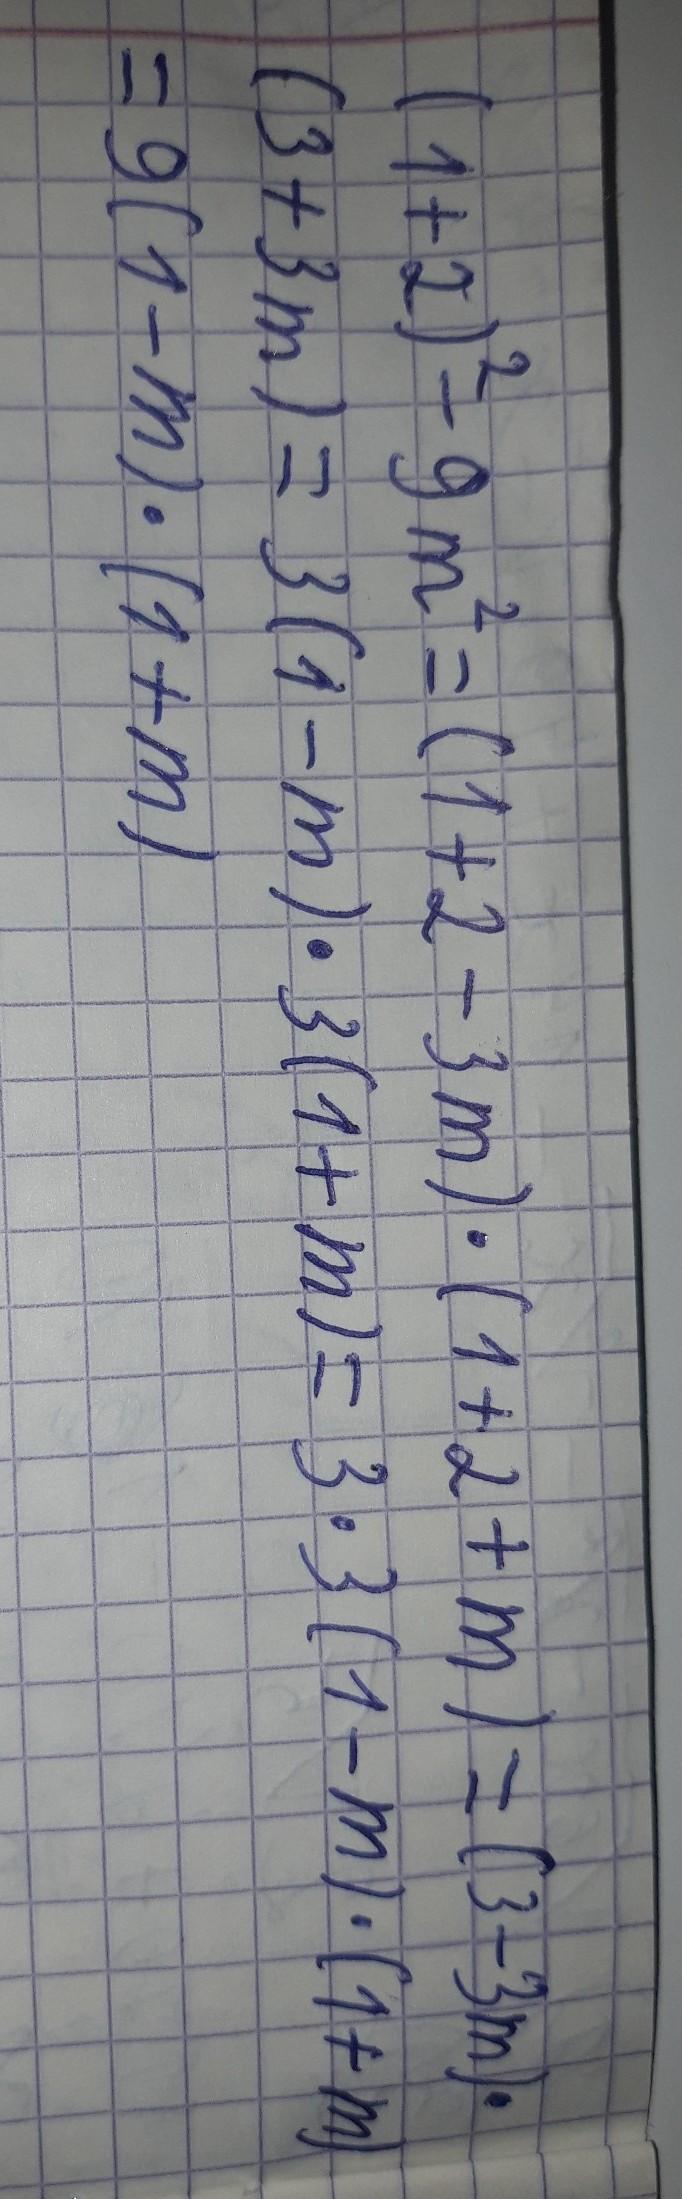 (1+2)²-9m²=(1+2-3m)·(1+2+m)=(3-3m)·
(3+3m)=3(1-m)·3(1+m)=3·3(1-m)·(1+m)
=9(1-m)·(1+m)